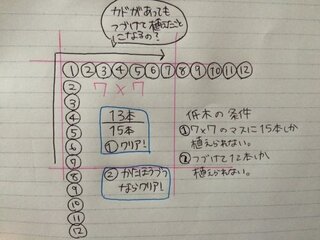 カドがあっても
つづけて植えたこと
になるの?
① ② ③ ④ ⑤ ⑥ ⑦ ⑧ ⑨ ⑩ ⑪ ⑫
②
③
④
⑤
⑥
⑦
⑧
⑨
⑩
⑪
⑫
7×7
13本
15本
①クリア!
②かたほうづつ
ならクリア!
低木の条件
①7×7のマスに15本しか
植えられない。
②つづけて12本しか
植えられない。